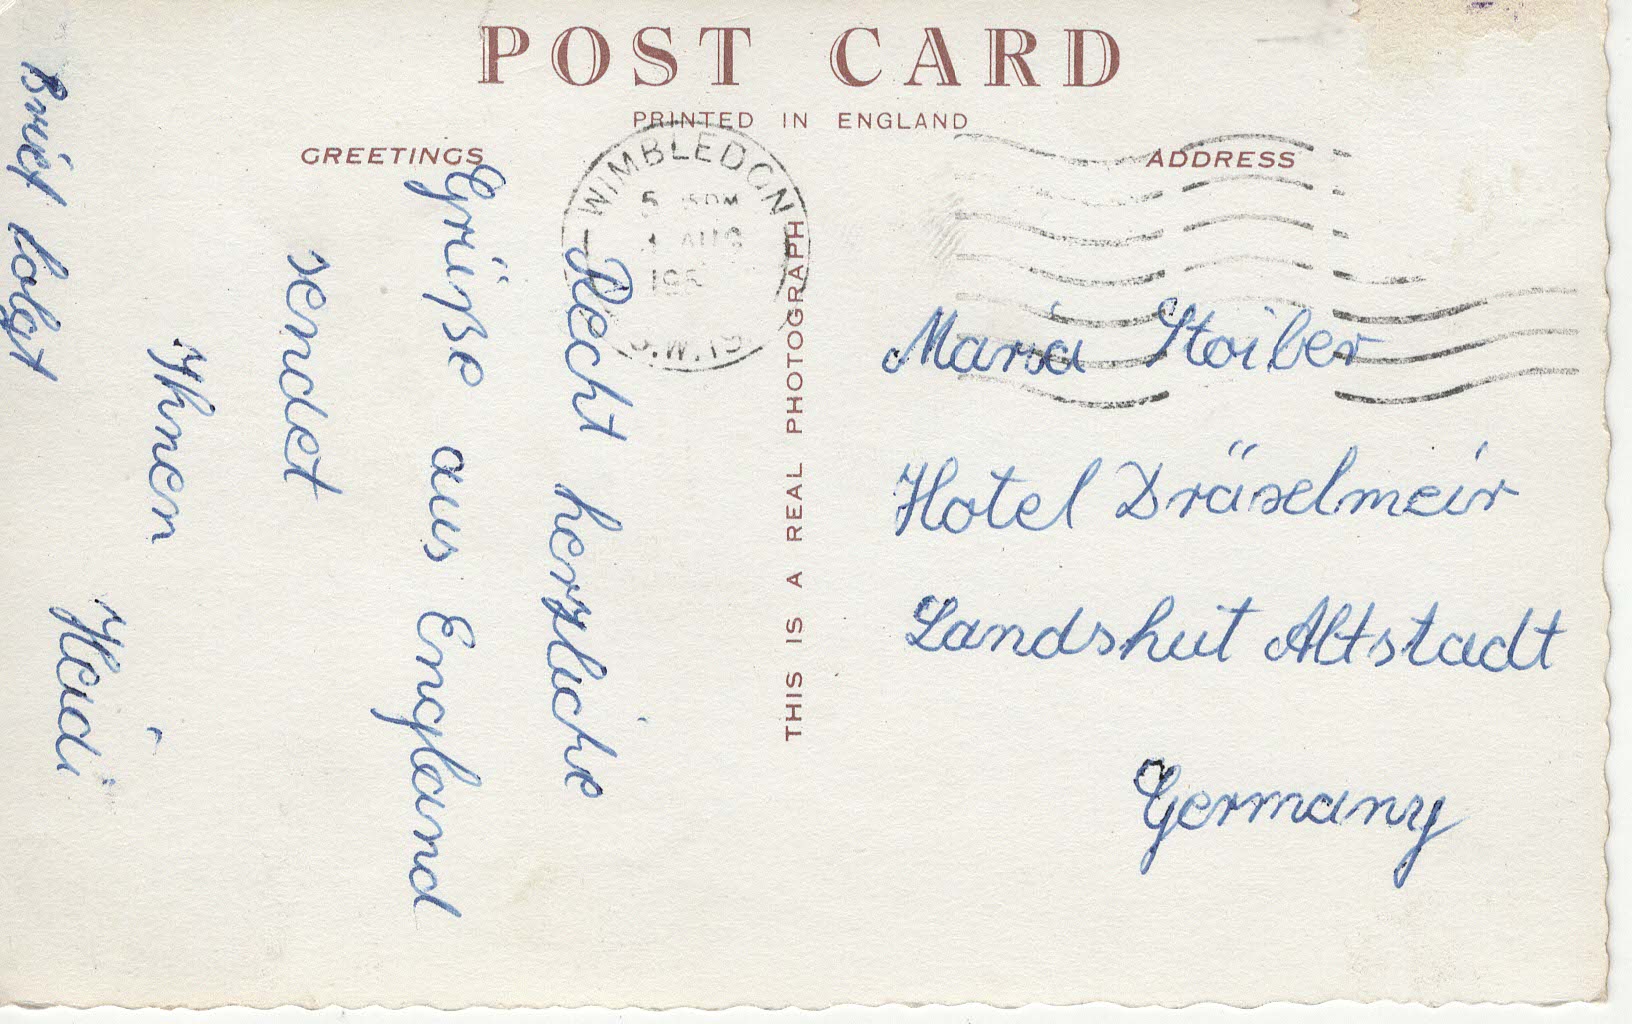 POST CARD
PRINTED IN ENGLAND
GREETINGS
ADDRESS
WIMBLEDON
AUG
S.W.19
THIS IS A REAL PHOTOGRAPH
Recht herzliche
Grüße aus England
sendet
Ihnen
Heidi
Brief folgt
Maria Stoiber
Hotel Dräxelmeir
Landshut Altstadt
Germany